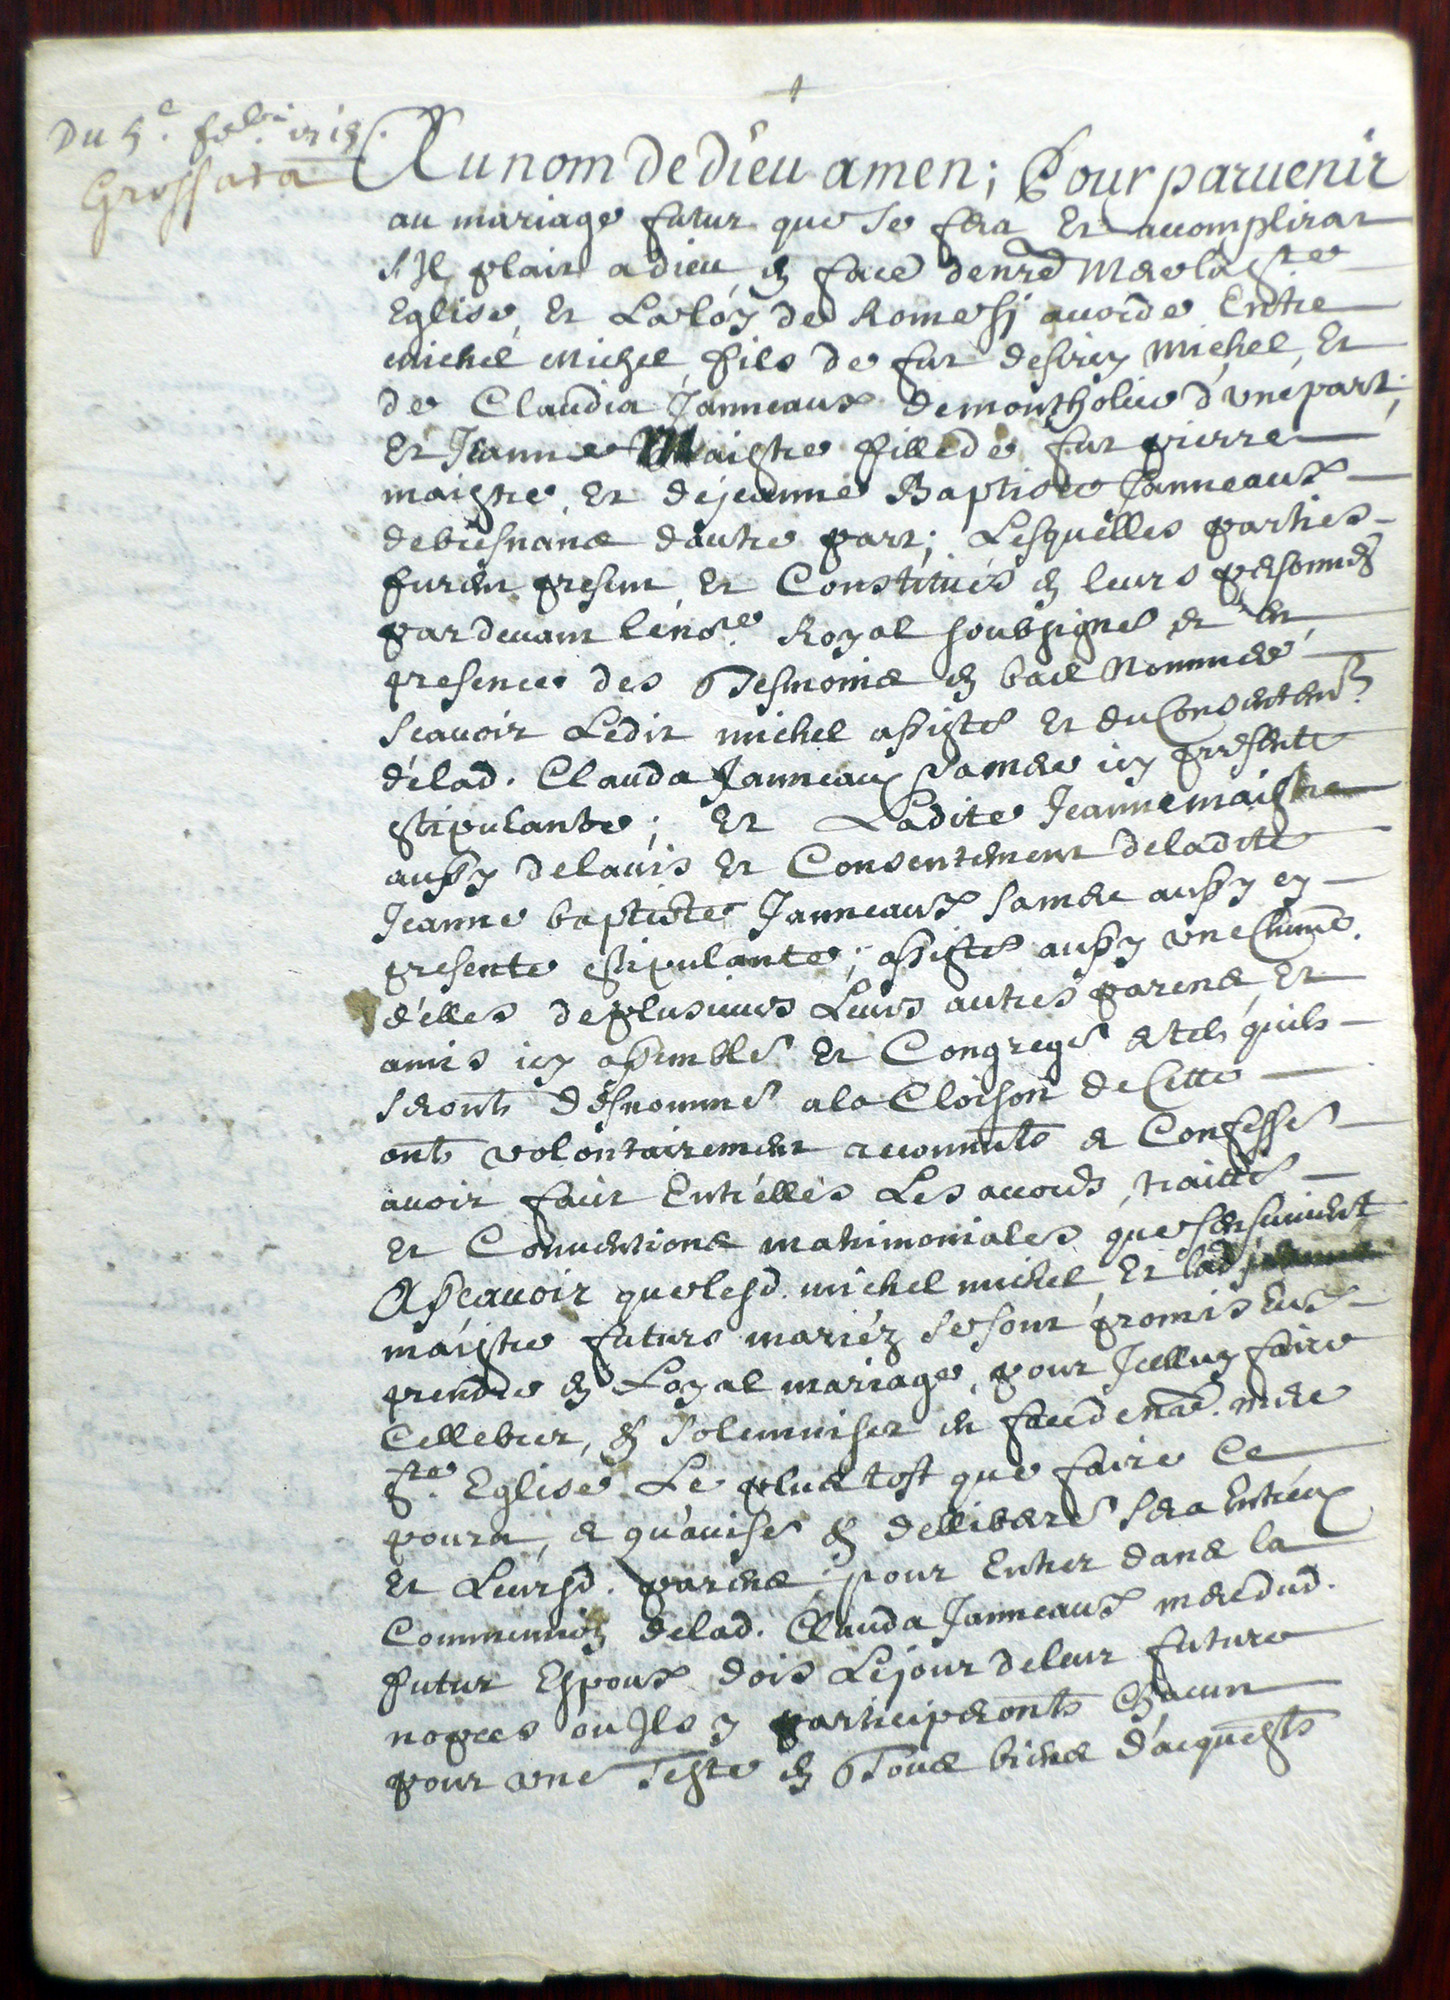 Du 5e. feb.
Grossata
Au nom de dieu amen; Pour paruenir
au mariage futur que se fera Et acomplirat
s'Jl plait a dieu en face de nre Mere la ste
Eglise, Et La loy de Rome sy acorde Entre
michel michel, fils de fut michel, Et
de Claudia Janneaux de d'vne part;
Et Jeanne Maistre fille de fut pierre
maistre, Et de jeanne Baptiste Janneaux
d'autre part; Lesquelles parties
furent present Et Constitués en leurs personnes
par deuant le nore. Royal soubsigné et en
presence des Tesmoins en bas Nommés
scauoir Ledit michel assisté Et du Consentemt
de lad. Clauda Janneaux sa mere icy presente
stipulante; Et Ladite Jeanne maistre
aussy de lauis Et Consentement de ladite
Jeanne baptiste Janneaux sa mere aussy cy
presente stipulante; assistés aussy vne Chune.
d'elles de plusieurs Leurs autres parens Et
amis icy assemblés Et Congregés et tels quils
seront desnommés a la Cloison de Cette
ont volontairement reconnuts et Confessés
auoir fait Entre'elles Les accords, traittés
Et Conuentions matrimoniales que sensuiuent
Ascauoir que lesd. michel michel, Et lad. jeanne
maistre futurs mariéz se sont promis Eux
prendre en Loyal mariage, pour Jcelluy faire
Cellebrer, & solemniser en face de nre. mere
ste. Eglise Le plus tost que faire Ce
poura, et qu'auisé & dellibere sera Entre'eux
Et Leursd. parens; pour Entrer dans la
Communion de lad. Clauda Janneaux mere dud.
futur Espoux dois Le jour de leur future
nopces ou Jls y participeront Chacun
pour vne Teste en Tous biens d'acquests